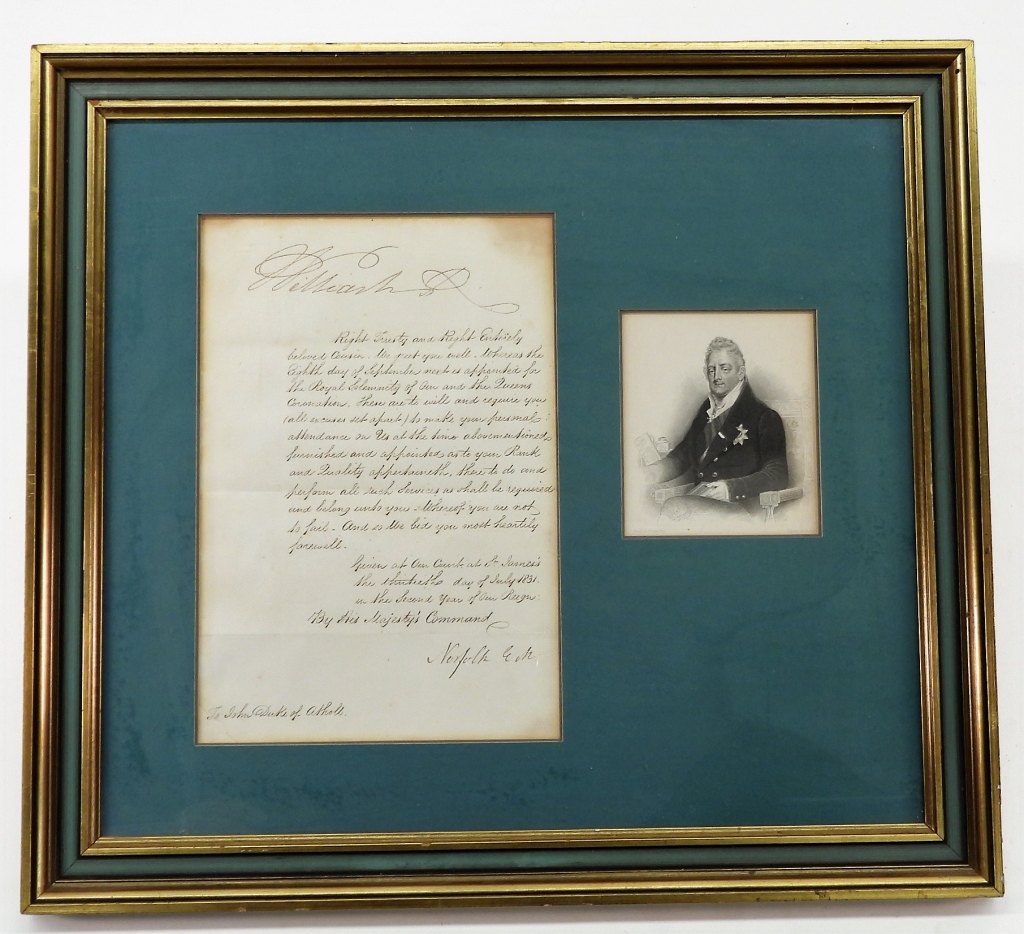 William R
Right Trusty and Right Entirely
beloved Cousin. We greet you well. Whereas the
Eighth day of September next is appointed for
the Royal Solemnity of Our and the Queens
Coronation. These are to will and require you
(all excuses set apart) to make your personal
attendance on Us at the time abovementioned
furnished and appointed as to your Rank
and Quality appertaineth, there to do and
perform all such Services as shall be required
and belong unto you. Whereof you are not
to fail. And so We bid you most heartily
farewell.
Given at Our Court at St. James's
the thirtieth day of July 1831.
in the Second Year of Our Reign.
By His Majesty's Command
Norfolk E M
To John Duke of Atholl.